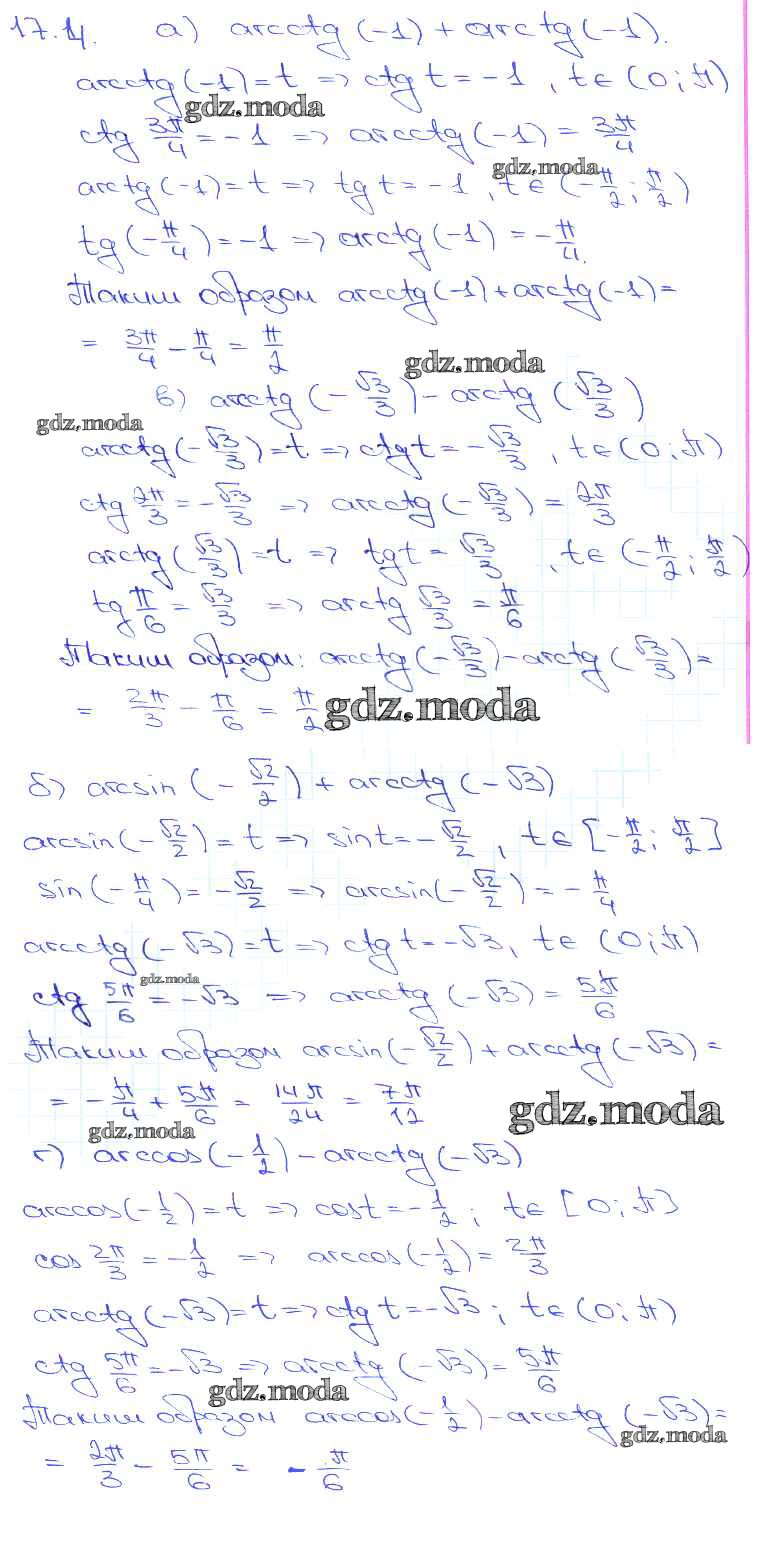 17.14. а) arcctg(-1) + arctg(-1).
arcctg(-1) = t => ctg t = -1, t ∈ (0; π)
gdz.moda
ctg 3π/4 = -1 => arcctg(-1) = 3π/4
gdz.moda
arctg(-1) = t => tg t = -1, t ∈ (-π/2; π/2)
tg(-π/4) = -1 => arctg(-1) = -π/4.
Таким образом arcctg(-1) + arctg(-1) =
= 3π/4 - π/4 = π/2
gdz.moda
в) arcctg(-√3/3) - arctg(√3/3)
gdz.moda
arcctg(-√3/3) = t. => ctg t = -√3/3, t ∈ (0; π)
ctg 2π/3 = -√3/3 => arcctg(-√3/3) = 2π/3
arctg(√3/3) = t. => tg t = √3/3, t ∈ (-π/2; π/2)
tg π/6 = √3/3 => arctg √3/3 = π/6
Таким образом: arcctg(-√3/3) - arctg(√3/3) =
= 2π/3 - π/6 = π/2 gdz.moda
б) arcsin(-√2/2) + arcctg(-√3)
arcsin(-√2/2) = t => sin t = -√2/2, t ∈ [-π/2; π/2]
sin(-π/4) = -√2/2 => arcsin(-√2/2) = -π/4
arcctg(-√3) = t => ctg t = -√3, t ∈ (0; π)
gdz.moda
ctg 5π/6 = -√3 => arcctg(-√3) = 5π/6
Таким образом arcsin(-√2/2) + arcctg(-√3) =
= -π/4 + 5π/6 = 14π/24 = 7π/12 gdz.moda
gdz.moda
г) arccos(-1/2) - arcctg(-√3)
arccos(-1/2) = t => cos t = -1/2; t ∈ [0; π]
cos 2π/3 = -1/2 => arccos(-1/2) = 2π/3
arcctg(-√3) = t => ctg t = -√3; t ∈ (0; π)
ctg 5π/6 = -√3 => arcctg(-√3) = 5π/6
gdz.moda
Таким образом arccos(-1/2) - arcctg(-√3) =
gdz.moda
= 2π/3 - 5π/6 = -π/6